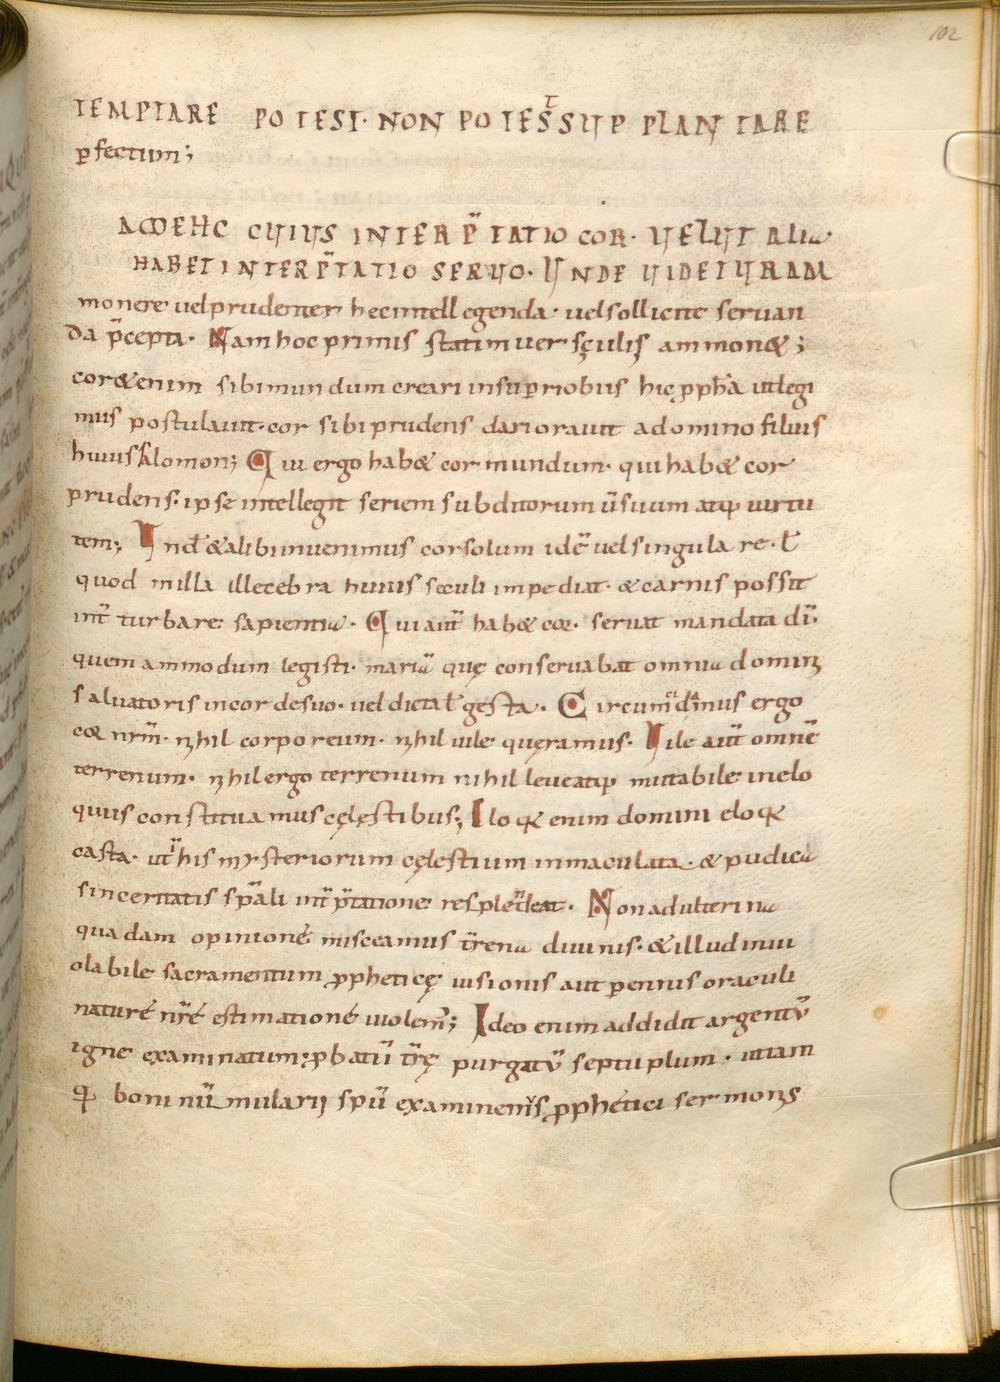 102
TEMPTARE POTEST· NON POTEST SUPPLANTARE
ꝑfectum;
AMEHC CUIUS INTERP̄TATIO COR· UELUT ALIa·
HABET INTERP̄TATIO SERUO· UNDE UIDETUR AM
monere uel prudenter hec intellegenda· uel sollicite seruan
da p̄cepta· Nam hoc primis statim uersęculis ammon&;
cor & enim sibi mundum creari in suꝑioribus hic ꝓph̄a ut legi
mus postulauit· cor sibi prudens dari orauit a domino filius
huius salomon; Qui ergo hab& cor mundum· qui hab& cor
prudens· ipse intellegit seriem subditorum ūsuum atq; uirtu
tem; Ind̄ & alibi inuenimus cor solum idē uel singulare· ł
quod nulla illecebra huius seculi impediat· & carnis possit
int̄ turbare sapientia· Qui aut̄ hab& cor· seruat mandata dī·
quem ammodum legisti· mariā quę conseruabat omnia domini
saluatoris in corde suo· uel dicta ł gesta· Circumcīdamus ergo
cor nr̄m· nihil corporeum· nihil uile quęramus· Uile aut̄ omnē
terrenum· nihil ergo terrenum nihil leue atq; mutabile in elo
quiis constituamus cęlęstibus; Eloq& enim domini eloq&
casta· ut ī his mysteriorum cęlestium inmaculata· & pudica
sinceritatis sp̄ali int̄p̄tatione resplendeat· Non adulterina
quadam opinione misceamus t̄rena diuinis· & illud inui
olabile sacramentum ꝓpheticę uisionis aut ꝑennis oraculi
naturé nr̄é estimatione uiolem̄; Ideo enim addidit argentū
igne examinatum; ꝓbatū t̄rę purgatū septuplum· uttam
q̄ boni nūmularii spū examinem̄s ꝓphetici sermonis